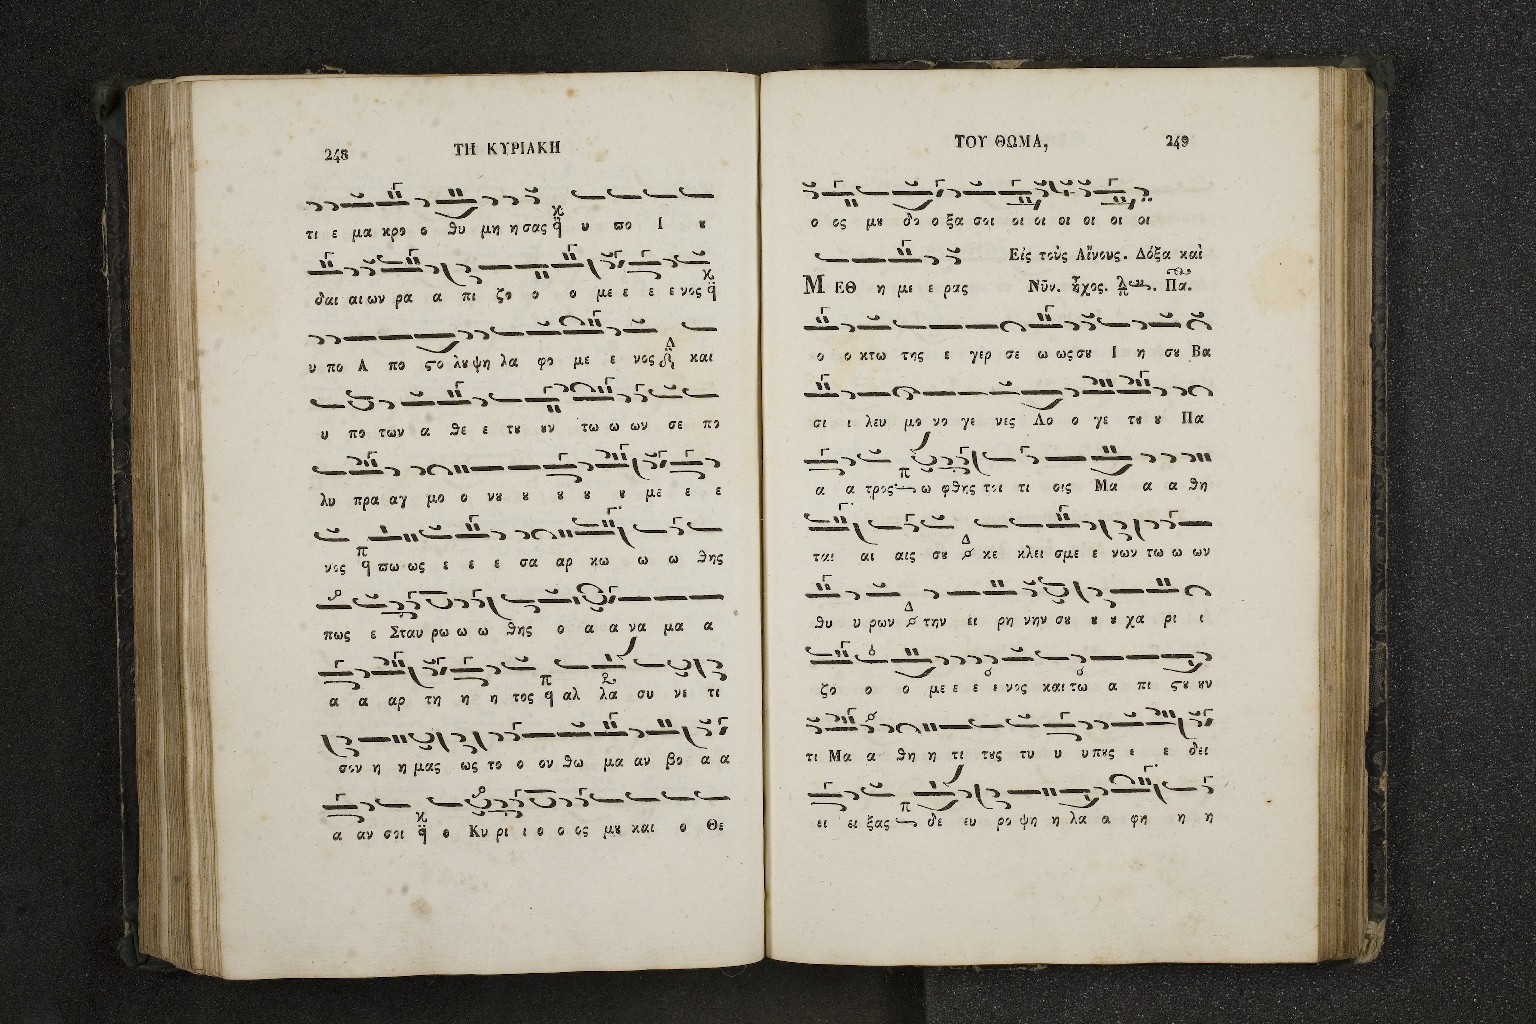 248
ΤΗ ΚΥΡΙΑΚΗ
τι ε μα κρο ο θυ μη η σας υ πο Ι ȣ
δαι αι ων ρα α πι ζο ο ο με ε ε ε νος
υ πο Α πο ϛο λȣ ψη λα φο με ε νος και
υ πο των α θε ε τȣ ȣν τω ω ων σε πο
λυ πρα αγ μο ο νȣ ȣ ȣ ȣ ȣ με ε ε
νος πω ως ε ε ε σα αρ κω ω ω θης
πως ε Σταυ ρω ω ω θης ο α α να μα α
α α αρ τη η η τος αλ λα συ νε τι
σον η η μας ως το ο ον θω μα αν βο α α
α αν σοι ο Κυ ρι ι ο ο ος μȣ και ο Θε
ΤΟΥ ΘΩΜΑ,
249
ο ος μȣ δο ο ξα σοι οι οι οι οι οι οι
Εἰς τοὺς Αἴνους. Δόξα καὶ
ΜΕΘ η με ε ρας Νῦν. ἦχος. Πα.
ο ο κτω της ε γερ σε ω ως σȣ Ι η σȣ Βα
σι ι λευ μο νο γε νες Λο ο γε τȣ ȣ Πα
α α τρος ω φθης τοι τι οις Μα α α θη
ται αι αις σȣ κε κλει σμε ε νων τω ω ων
θυ υ ρων την ει ρη νην σȣ ȣ ȣ χα ρι ι
ζο ο ο με ε ε ε νος και τω α πι ϛȣ ȣν
τι Μα α θη η τι τȣς τυ υ υπȣς ε ε δει
ει ει ξας δε ευ ρο ψη η λα α φη η η